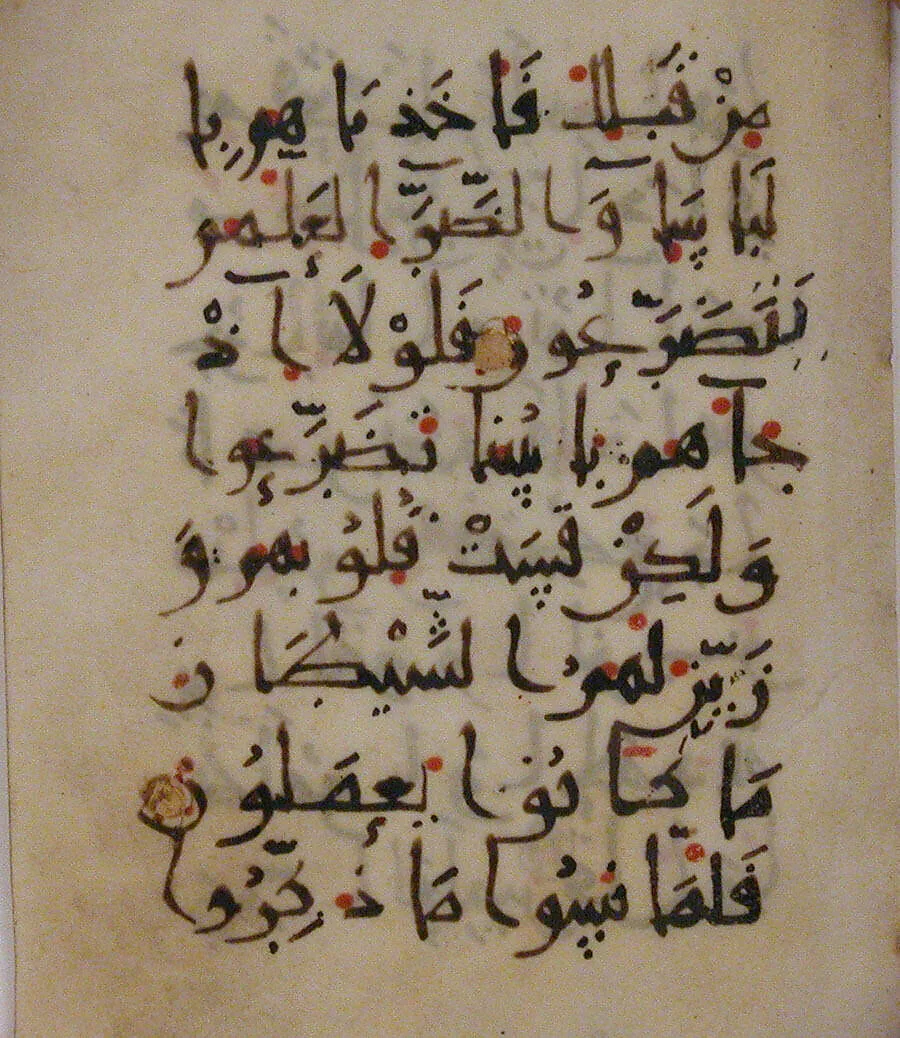 مِنْ قَبلك فَا خَذ نَا هم بِا
لبَا سَا وَا لضَّرَّا لعَلهم
يَتَضَرَّعُون فَلَوْلَا ا ذْ
جا هم با سُنا تضَرَّعوا
وَلَكِنْ قسَتْ قُلُو بهم وَ
زَيَّن لهم ا لشَّيْطَا ن
مَا كَا نُو ا يعمَلُون
فَلمَّا نسُوا مَا ذ كِّرُوا